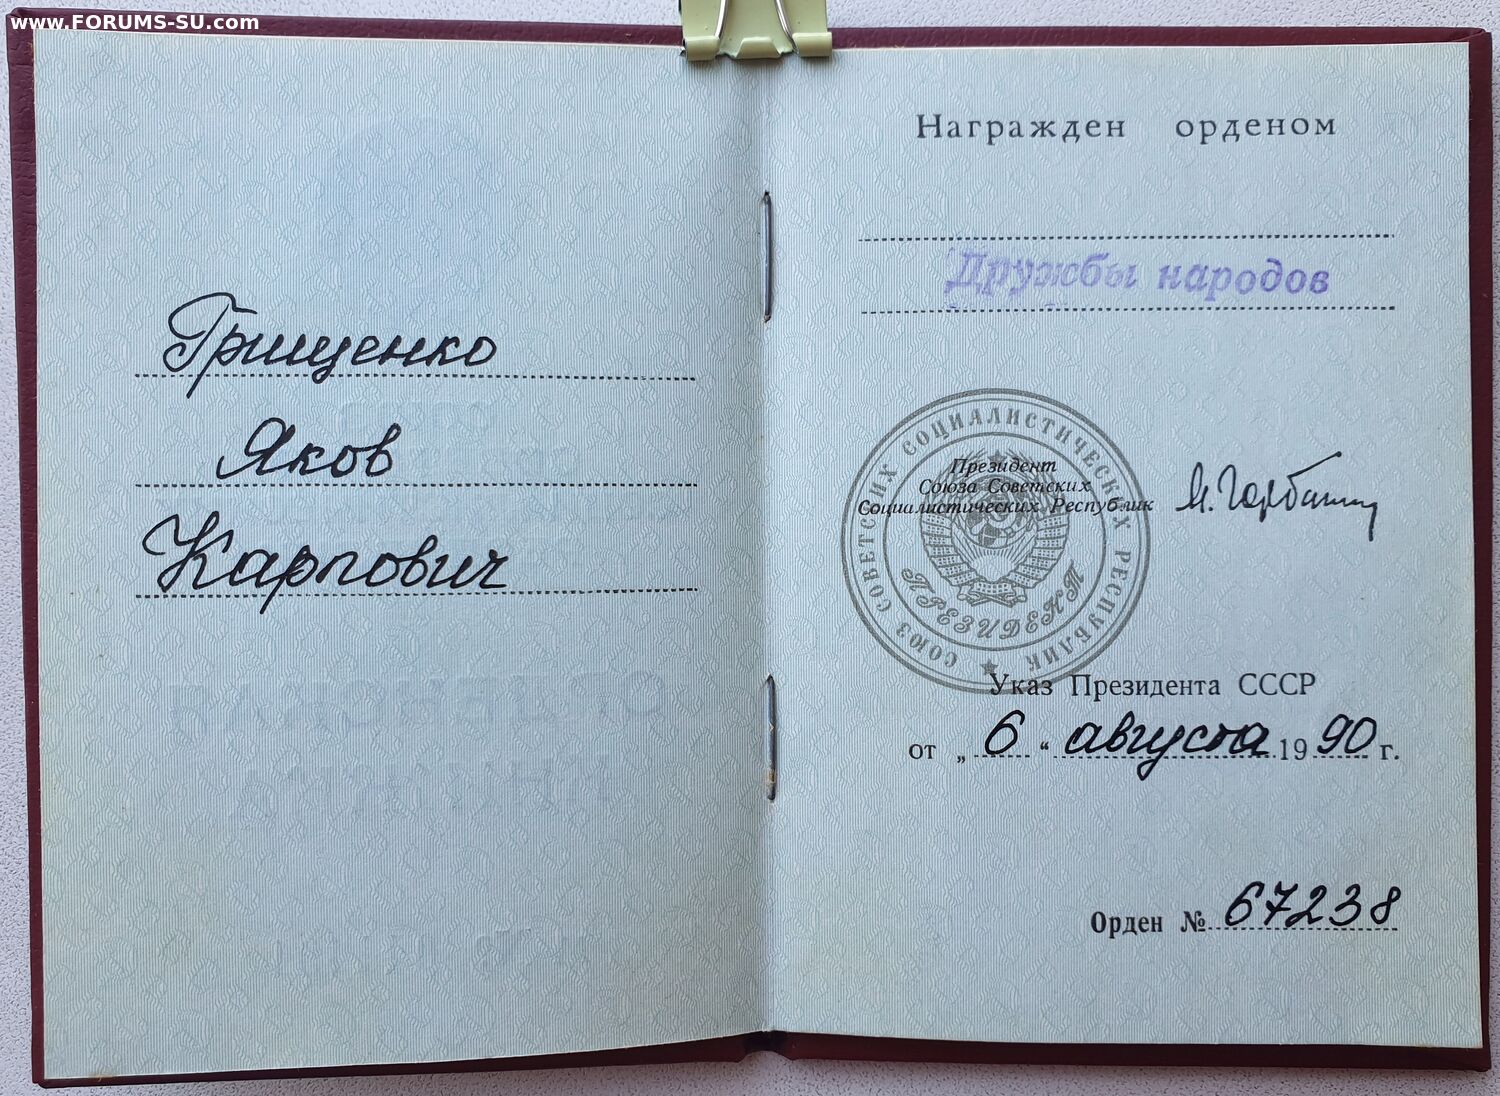 www.FORUMS-SU.com
Грищенко
Яков
Карпович
Награжден орденом
Дружбы народов
СОЮЗ СОВЕТСКИХ СОЦИАЛИСТИЧЕСКИХ РЕСПУБЛИК
ПРЕЗИДЕНТ
Президент
Союза Советских
Социалистических Республик
М. Горбачев
Указ Президента СССР
от „ 6 “ августа 19 90 г.
Орден № 67238